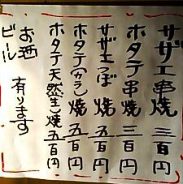 サザエ串焼 三百円
ホタテ串焼 三百円
サザエつぼ焼 五百円
ホタテ(カラ)焼 五百円
ホタテ天然生焼 五百円
お酒
ビール 有ります